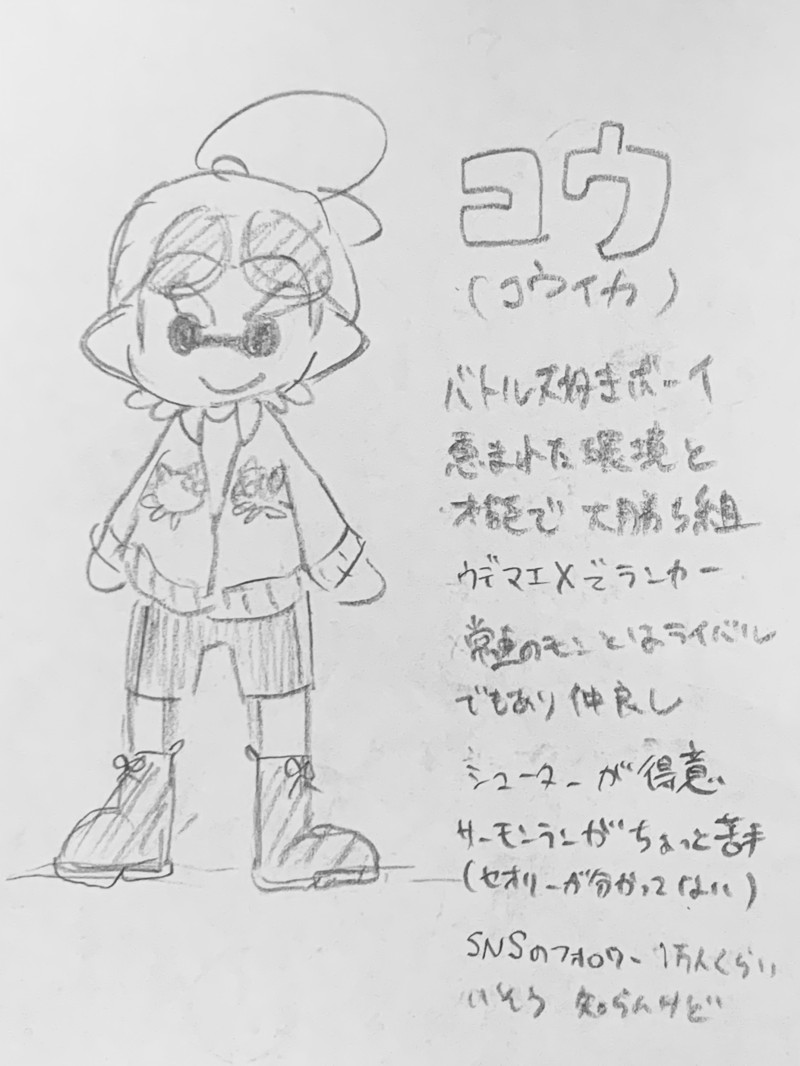 コウ
(コウイカ)
バトル好きボーイ
恵まれた環境と
才能で 大勝ち組
ウデマエXでランカー
常連のモンとはライバル
でもあり仲良し
シューターが得意
サーモンランがちょっと苦手
(セオリーが分かってない)
SNSのフォロワー 1万人くらい
いそう 知らんけど